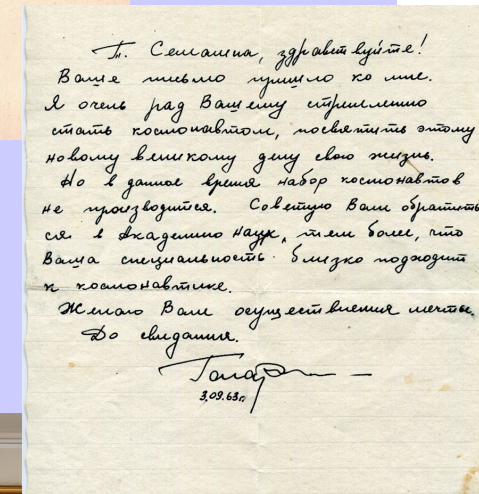 Т. Семашина, здравствуйте!
Ваше письмо пришло ко мне.
Я очень рад Вашему стремлению
стать космонавтом, посвятить этому
новому великому делу свою жизнь.
Но в данное время набор космонавтов
не производится. Советую Вам обратить-
ся в Академию наук, тем более, что
Ваша специальность близко подходит
к космонавтике.
Желаю Вам осуществления мечты.
До свидания.
Гагарин
3.09.63г.